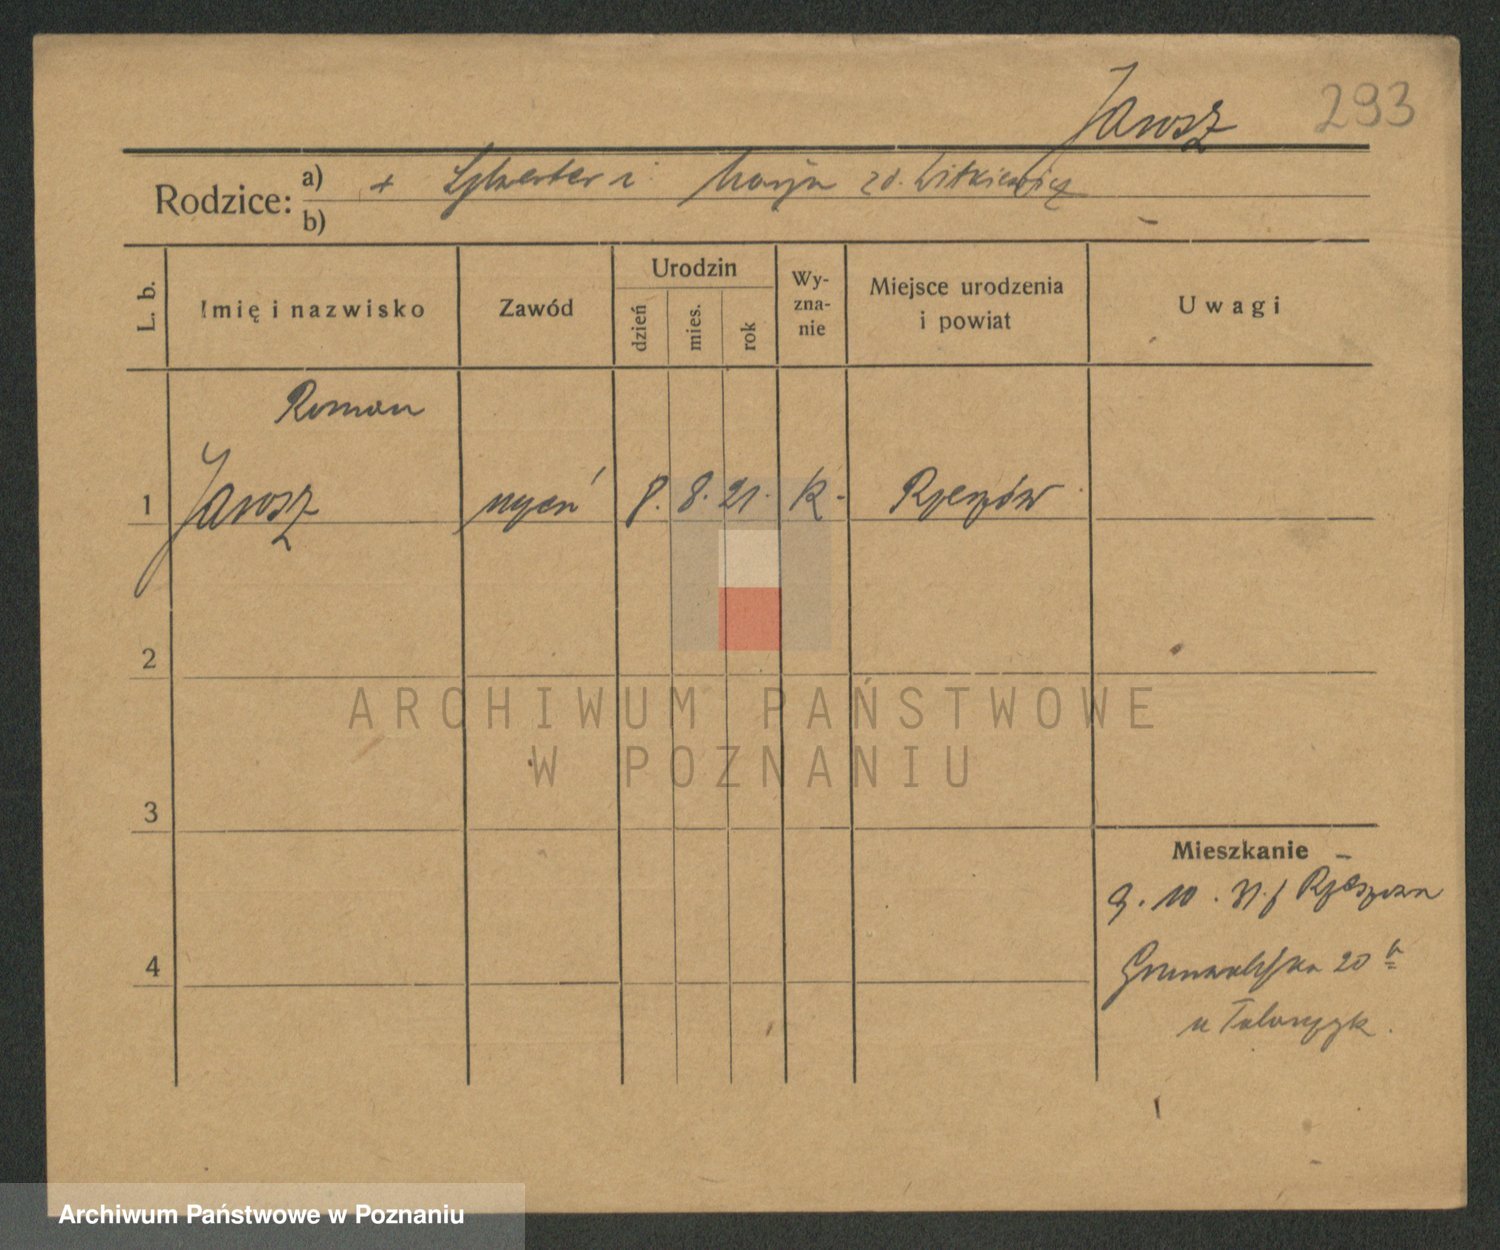 Jarosz 293
Rodzice: a) + Sylwester i Marja zd. Witkiewicz
b)
L. b. Imię i nazwisko Zawód Urodzin dzień mies. rok Wy-zna-nie Miejsce urodzenia i powiat Uwagi
Roman
1 Jarosz uczeń 8. 8. 21. k. Rzeszów
2
3
4
Mieszkanie
9. 10. 31. z Rzeszowa
Grunwaldzka 20
u
ARCHIWUM PAŃSTWOWE
W POZNANIU
Archiwum Państwowe w Poznaniu